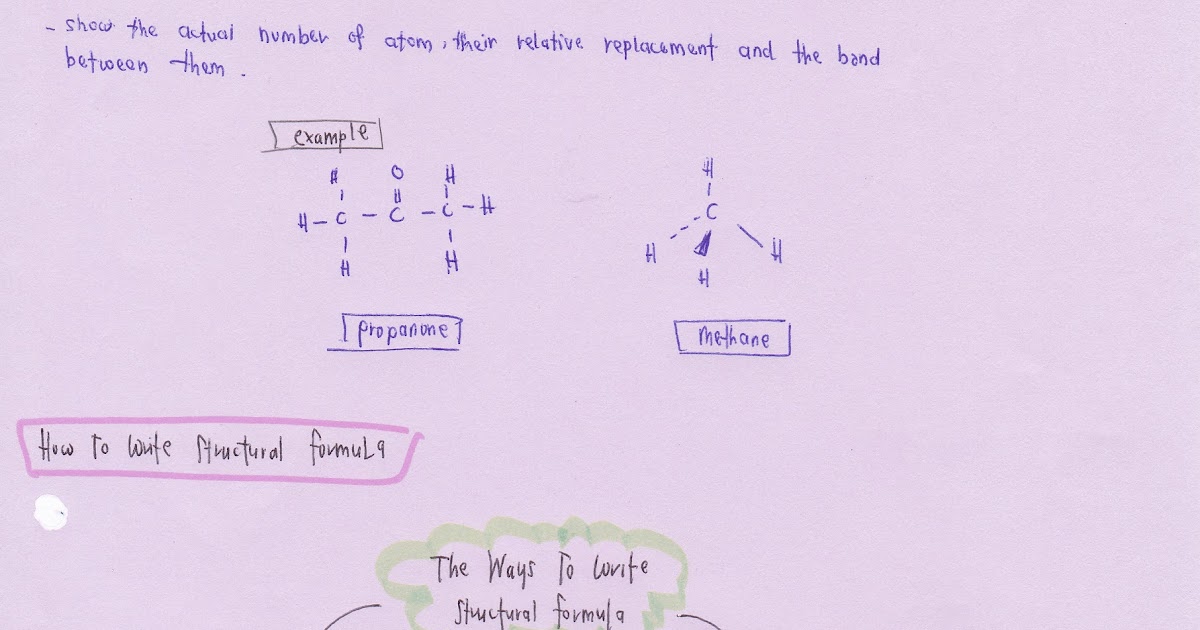 - show the actual number of atom, their relative replacement and the bond
between them.
example
H O H
H - C - C - C - H
H H
H
C
H H
H
propanone
methane
How To Write Structural formula
The Ways To Write
Structural formula